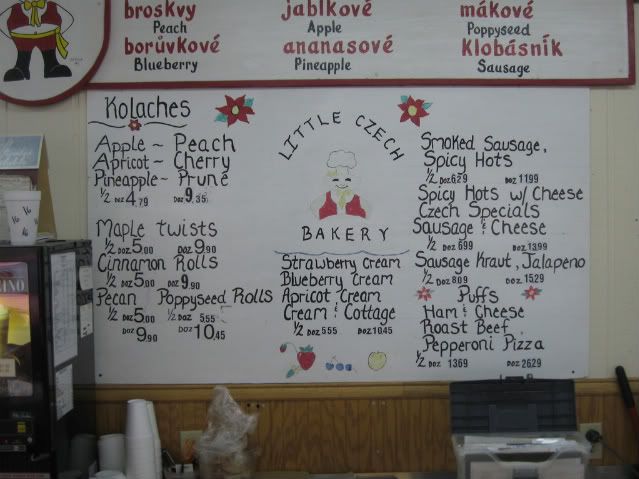 broskvy jablkové mákové
Peach Apple Poppyseed
borůvkové ananasové Klobásník
Blueberry Pineapple Sausage
Kolaches
Apple ~ Peach
Apricot ~ Cherry
Pineapple ~ Prune
1/2 DOZ 4.79 DOZ 9.35
Maple Twists
1/2 DOZ 5.00 DOZ 9.90
Cinnamon Rolls
1/2 DOZ 5.00 DOZ 9.90
Pecan Poppyseed Rolls
1/2 DOZ 5.00 1/2 DOZ 5.55
DOZ 9.90 DOZ 10.45
LITTLE CZECH
BAKERY
Strawberry Cream
Blueberry Cream
Apricot Cream
Cream & Cottage
1/2 DOZ 5.55 DOZ 10.45
Smoked Sausage,
Spicy Hots
1/2 DOZ 6.29 DOZ 11.99
Spicy Hots w/ Cheese
Czech Specials
Sausage & Cheese
1/2 DOZ 6.99 DOZ 13.99
Sausage Kraut, Jalapeno
1/2 DOZ 8.09 DOZ 15.29
Puffs
Ham & Cheese
Roast Beef
Pepperoni Pizza
1/2 DOZ 13.69 DOZ 26.29